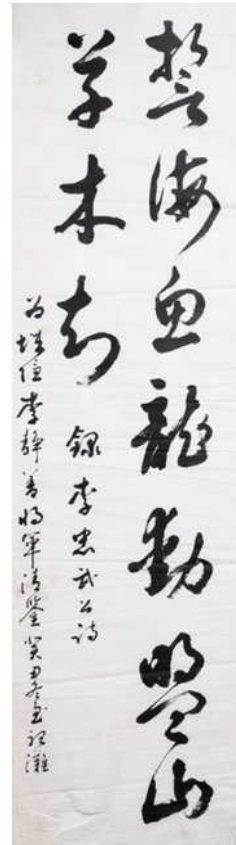 誓海魚龍動盟山
草木知
錄李忠武公詩
為李靜善將軍清鑒癸丑冬灘